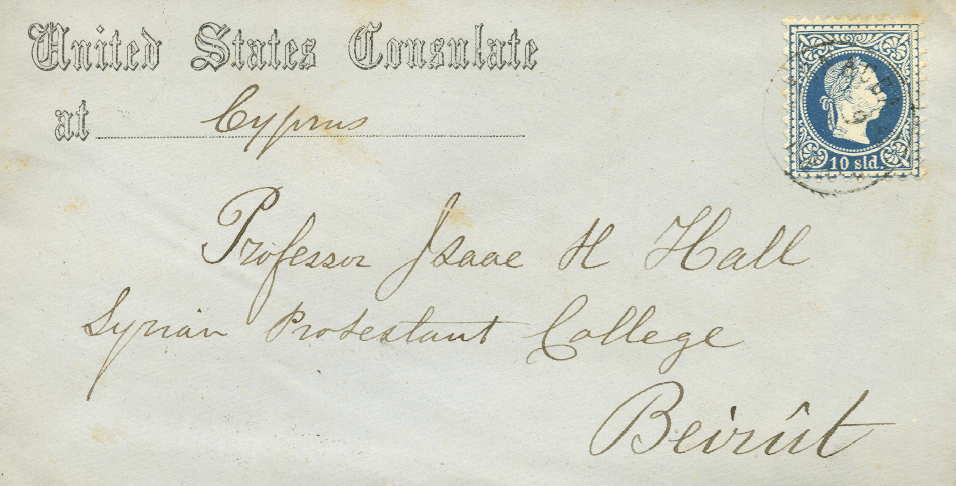 United States Consulate
at Cyprus
10 sld.
Professor Isaac H Hall
Syrian Protestant College
Beirût